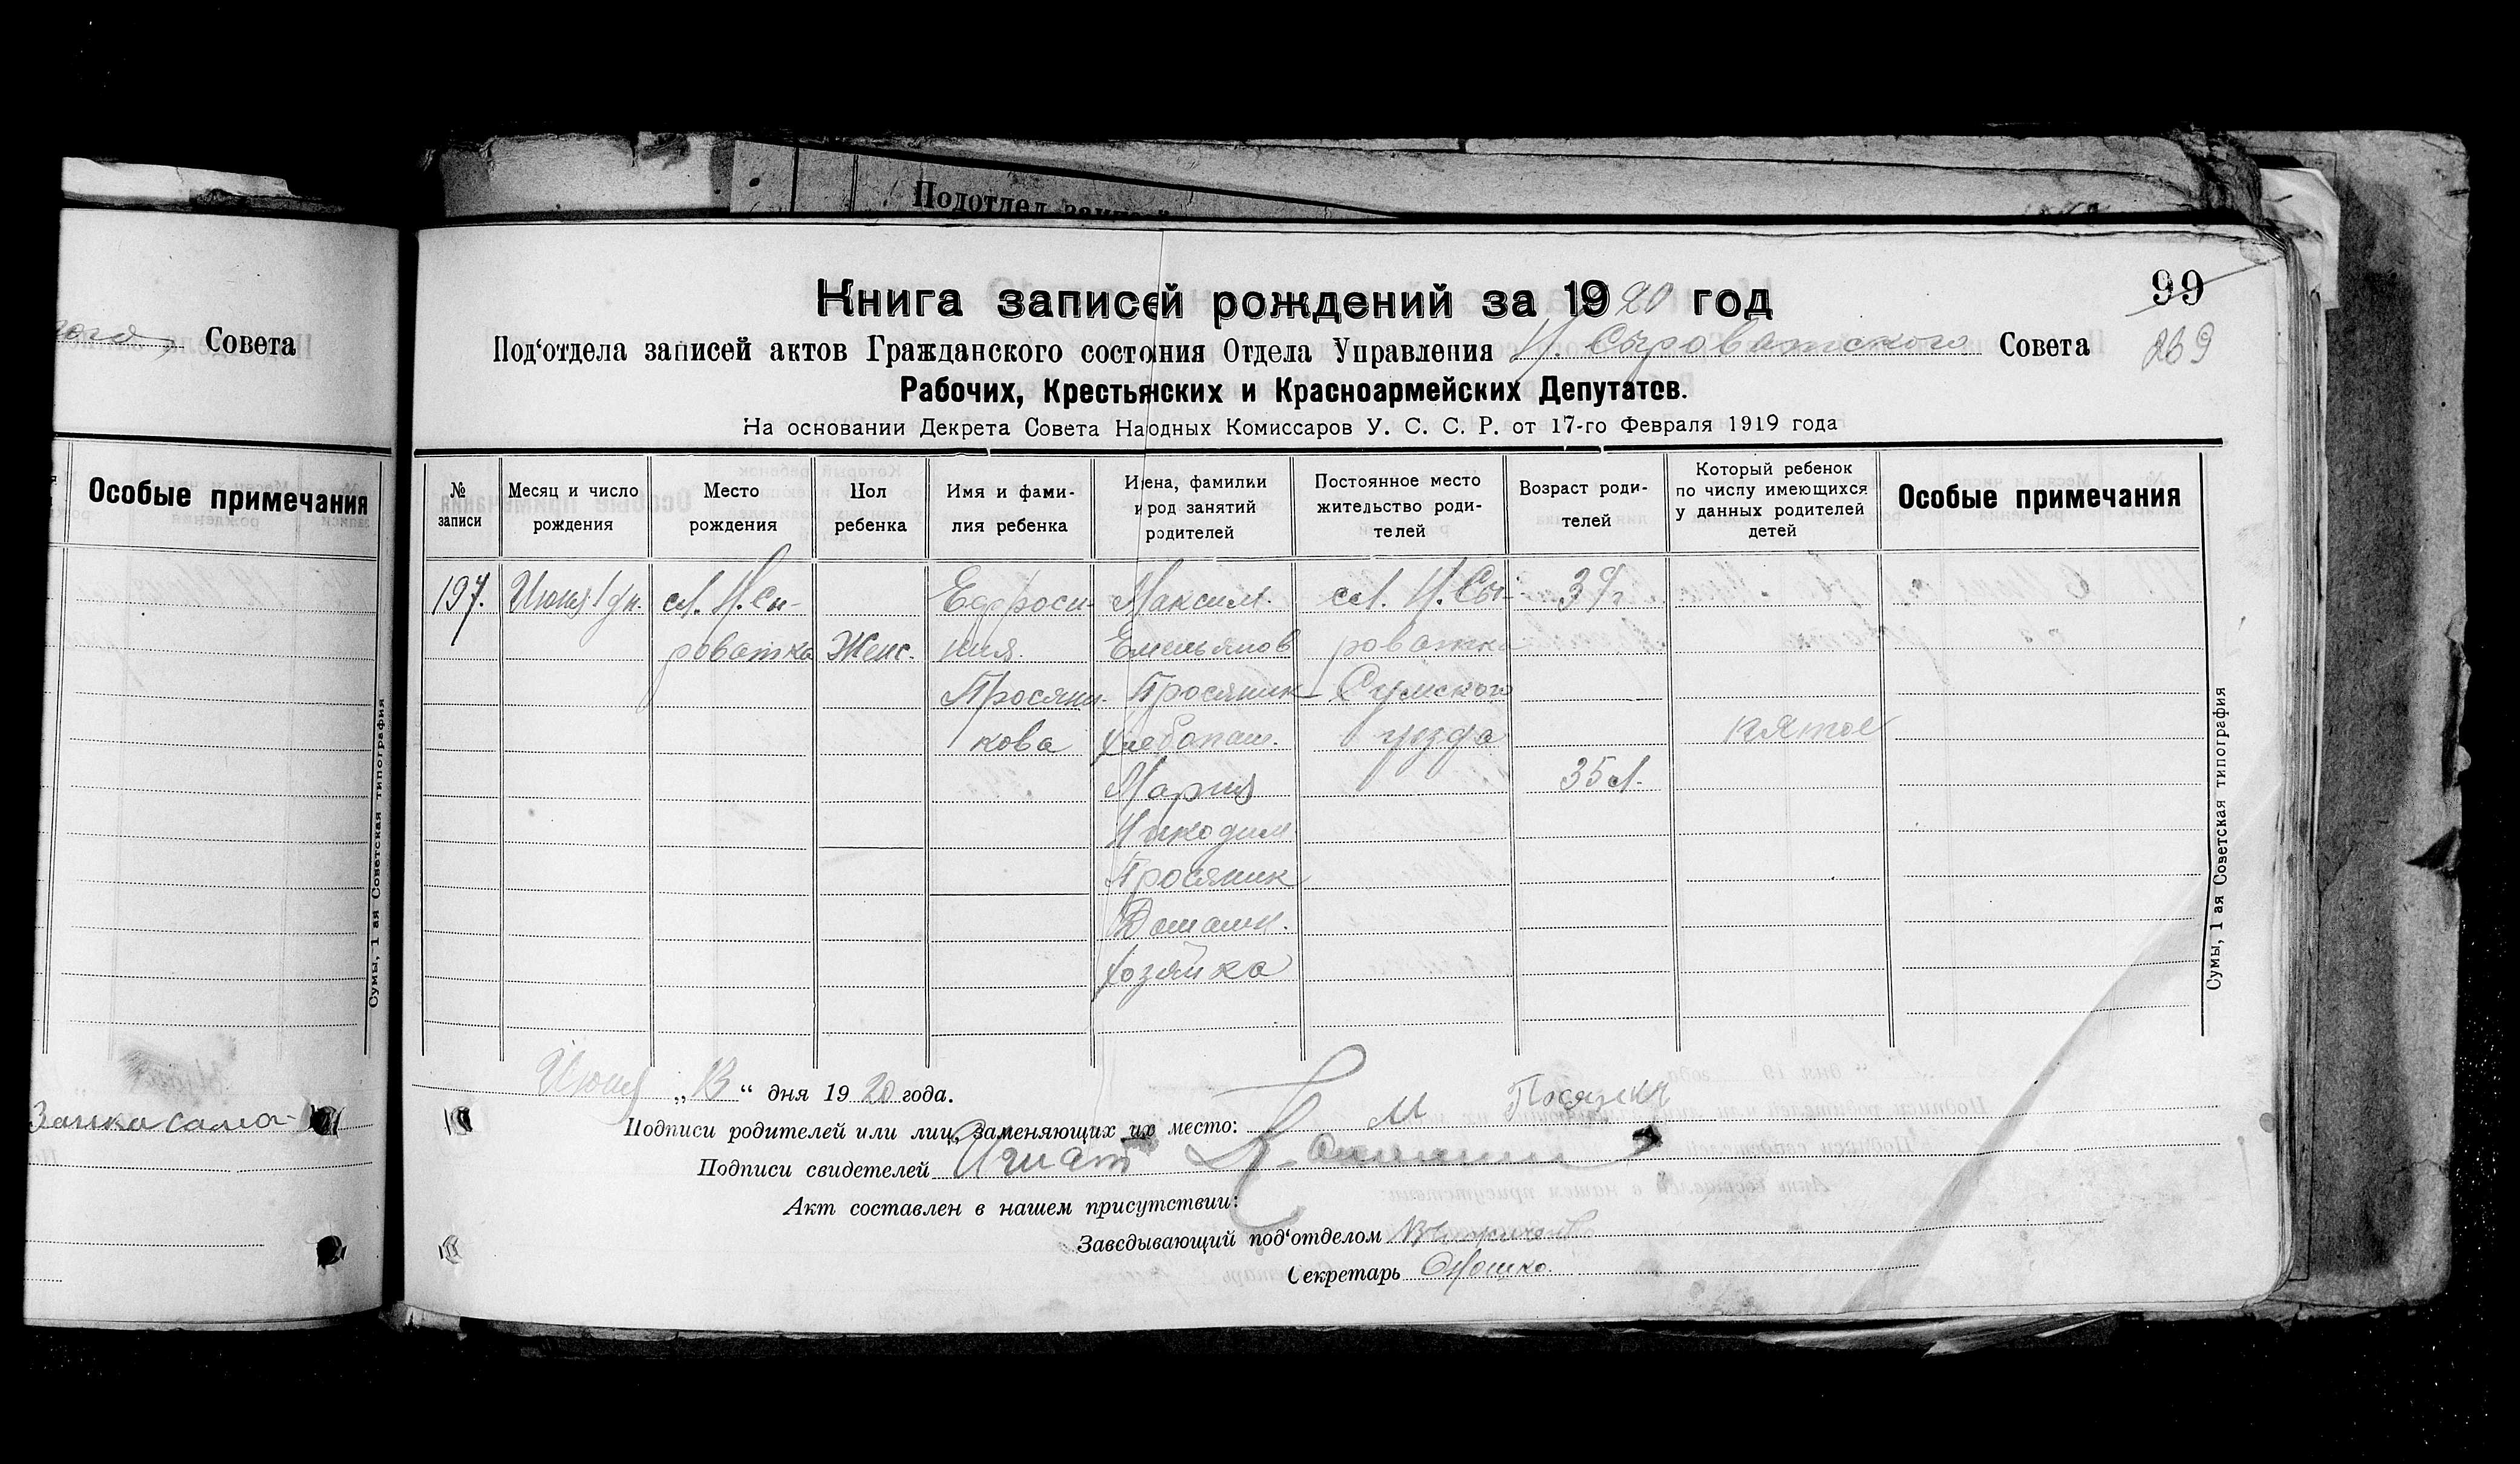 Подотдел
ого Совета
Особые примечания
Сумы, 1 ая Советская типография
99
Книга записей рождений за 1920 год
Под‘отдела записей актов Гражданского состояния Отдела Управления Н. Сыроватского Совета
269
Рабочих, Крестьянских и Красноармейских Депутатов.
На основании Декрета Совета Наодных Комиссаров У. С. С. Р. от 17-го Февраля 1919 года
№ записи
Месяц и число рождения
Место рождения
Пол ребенка
Имя и фами-
лия ребенка
Имена, фамилии
и род занятий
родителей
Постоянное место
жительство роди-
телей
Возраст роди-
телей
Который ребенок
по числу имеющихся
у данных родителей
детей
Особые примечания
197.
Июня 1 дн.
сл. Н. Сы-
роватка
Женс.
Ефроси-
ния
Просяни-
кова
Максим.
Емельянов
Просяник
Хлебопаш.
Мария
Никодим.
Просяник
Домашн.
Хозяйка
сл. Н. Сы-
роватка
Сумского
уезда
35 л.
пятое
Сумы, 1 ая Советская типография
Июня „13“ дня 1920 года.
Подписи родителей или лиц, заменяющих их место: М
Подписи свидетелей Игнат
Акт составлен в нашем присутствии:
Заведывающий под‘отделом
Секретарь